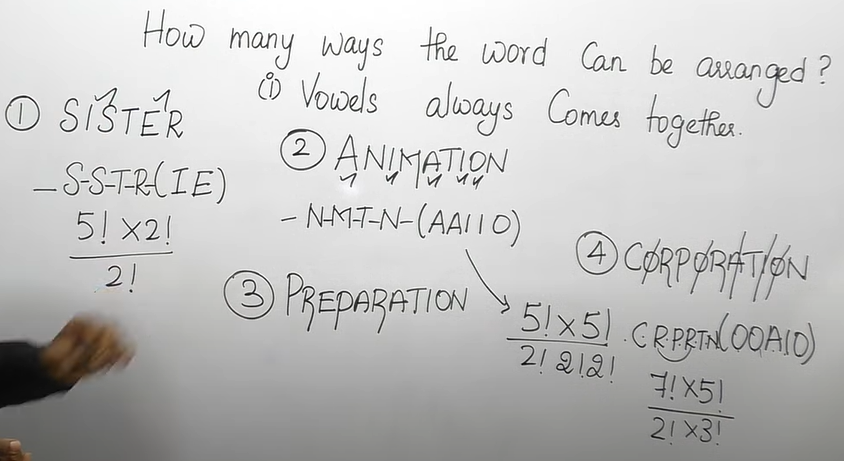 How many ways the word Can be arranged?
(i) Vowels always Comes together.
① SISTER
- S-S-T-R-(IE)
5! × 2!
2!
② ANIMATION
- N-M-T-N-(AAIIO)
5! × 5!
2! 2! 2!
③ PREPARATION
④ CORPORATION
C R P R T N (OOAIO)
7! × 5!
2! × 3!